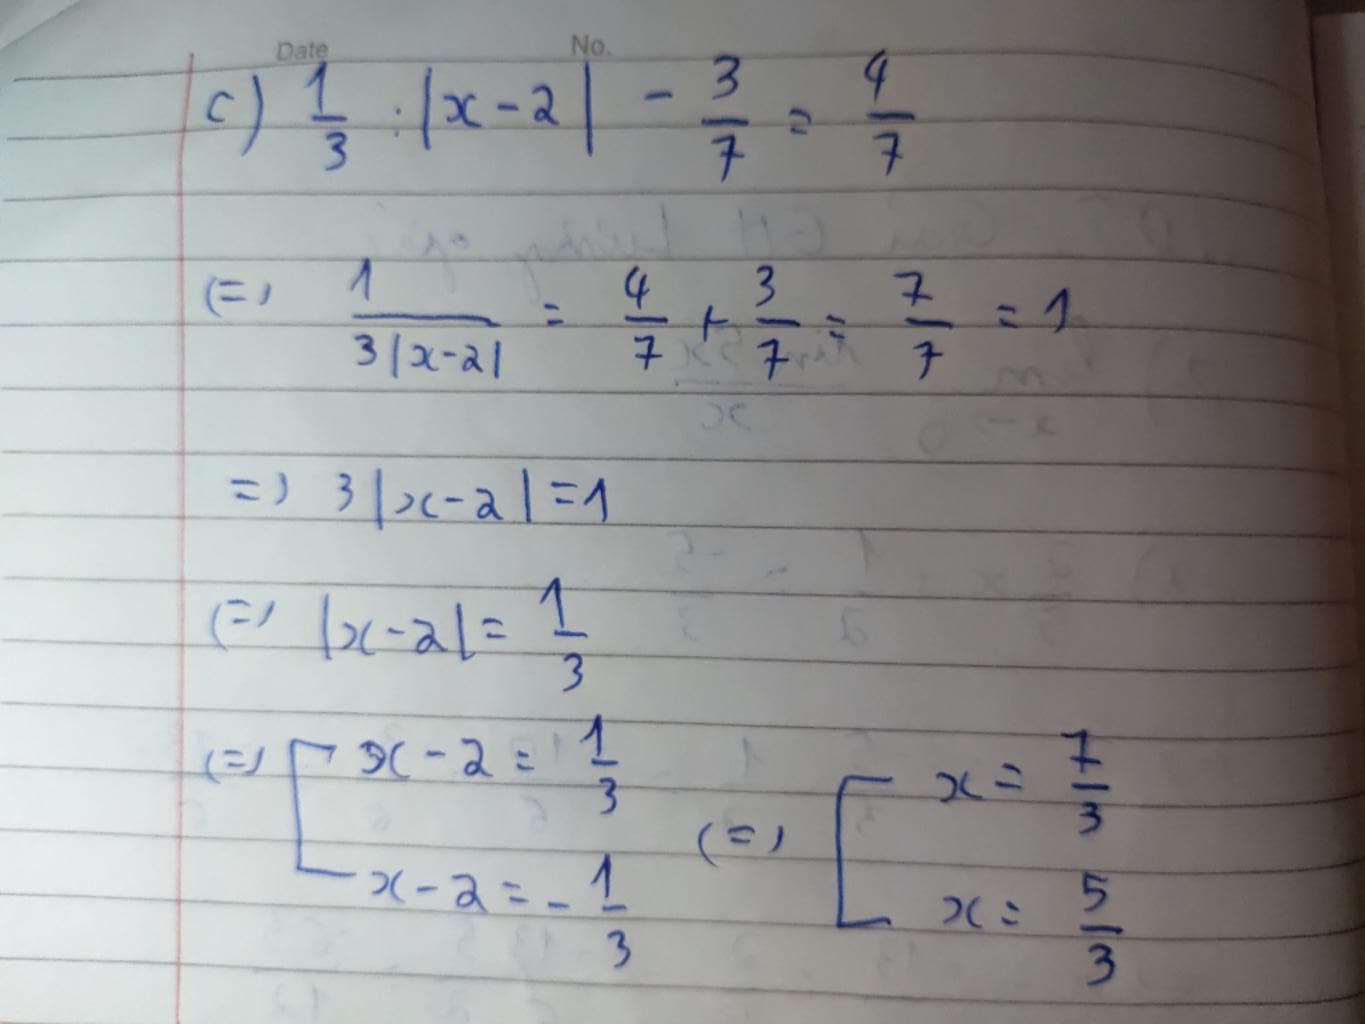 Date No.
c) 1/3 : |x - 2| - 3/7 = 4/7
(=) 1/(3|x-2|) = 4/7 + 3/7 = 7/7 = 1
=) 3|x-2| = 1
(=) |x-2| = 1/3
(=) [ x - 2 = 1/3 (=) [ x = 7/3
x - 2 = - 1/3 x = 5/3